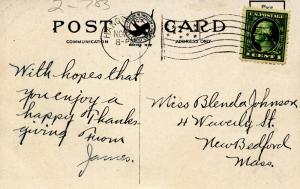 2-783
POST CARD
COMMUNICATION
ADDRESS ONLY
NOV
8-P
1 CENT 1
With hopes that
you enjoy a
happy Thanks-
giving From
James.
Miss Blenda Johnson
4 Waverly St.
New Bedford
Mass.